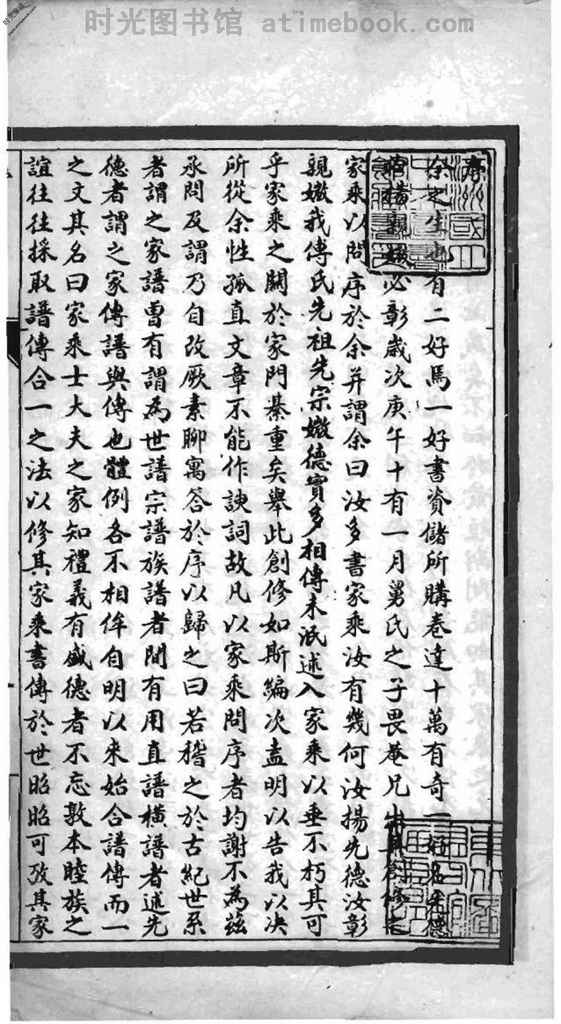 时光图书馆 atimebook.com
余之生也有二好焉一好書資儲所購卷達十萬有奇一好名
必彰歲次庚午十有一月舅氏之子畏菴兄出其創修
家乘以問序於余并謂余曰汝多書家乘汝有幾何汝揚先德汝彰
親媺我傅氏先祖先宗媺德實多相傳未泯述入家乘以垂不朽其可
乎家乘之關於家門綦重矣舉此創修如斯編次盍明以告我以决
所從余性孤直文章不能作諛詞故凡以家乘問序者均謝不為茲
承問及謂乃自改厥素聊寓答於序以歸之曰若稽之於古紀世系
者謂之家譜曹有謂為世譜宗譜族譜者間有用直譜橫譜者述先
德者謂之家傳譜與傳也體例各不相侔自明以來始合譜傳而一
之文其名曰家乘士大夫之家知禮義有盛德者不忘敦本睦族之
誼往往採取譜傳合一之法以修其家乘書傳於世昭昭可攷其家